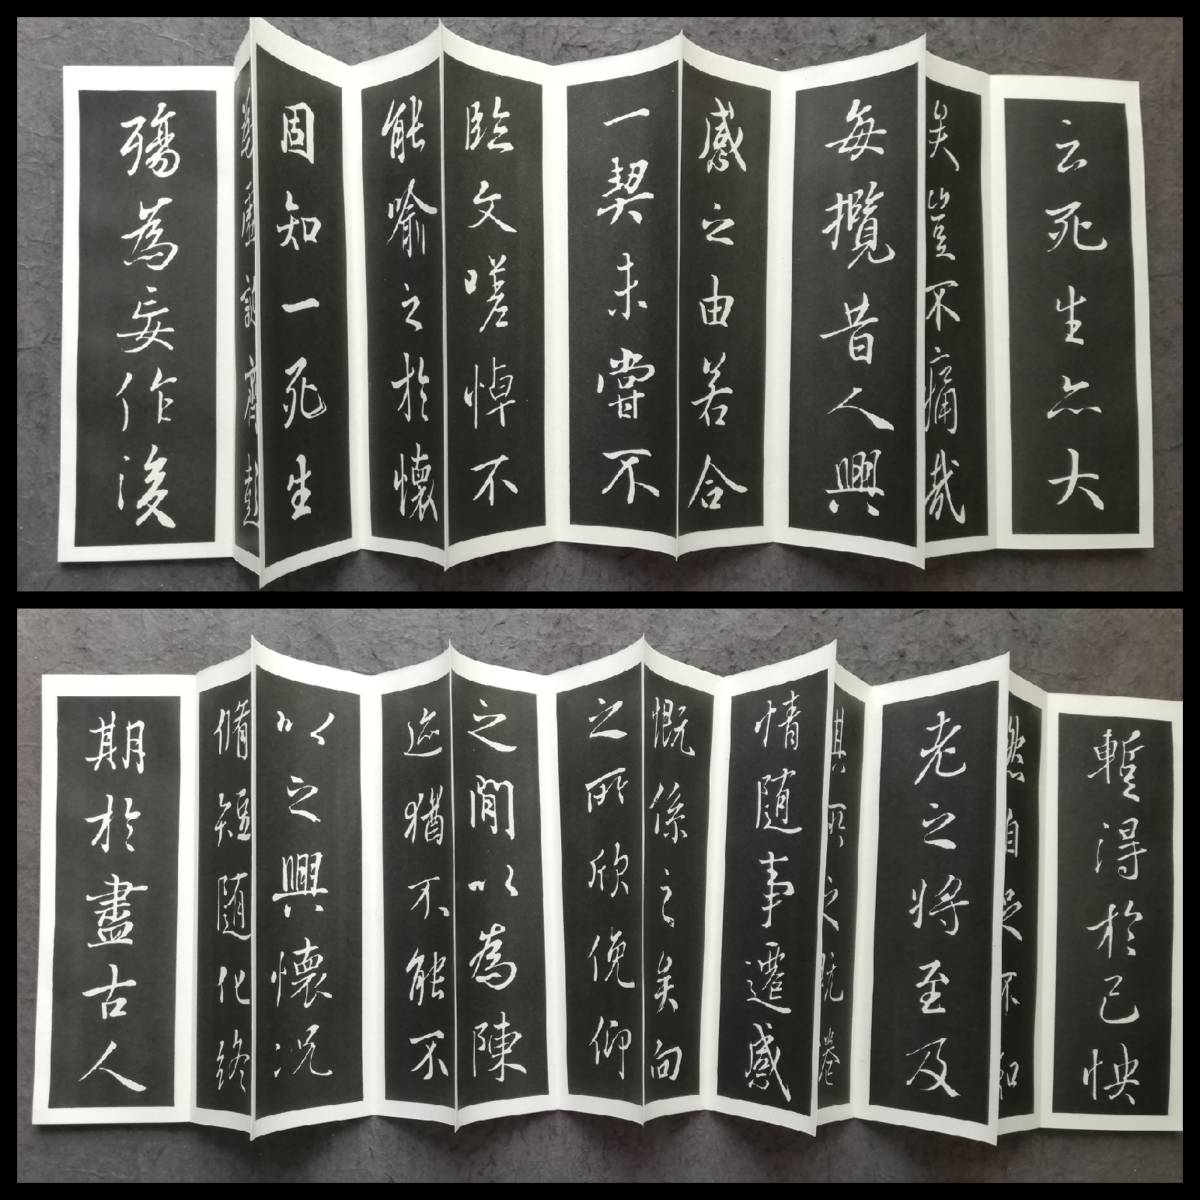 云死生亦大
矣豈不痛哉
每攬昔人興
感之由若合
一契未嘗不
臨文嗟悼不
能喻之於懷
固知一死生
為虛誕齊彭
殤為妄作後
暫得於己怏
然自足不知
老之將至及
其所之既惓
情随事遷感
慨係之矣向
之所欣俛仰
之閒以為陳
迹猶不能不
以之興懷況
脩短随化終
期於盡古人